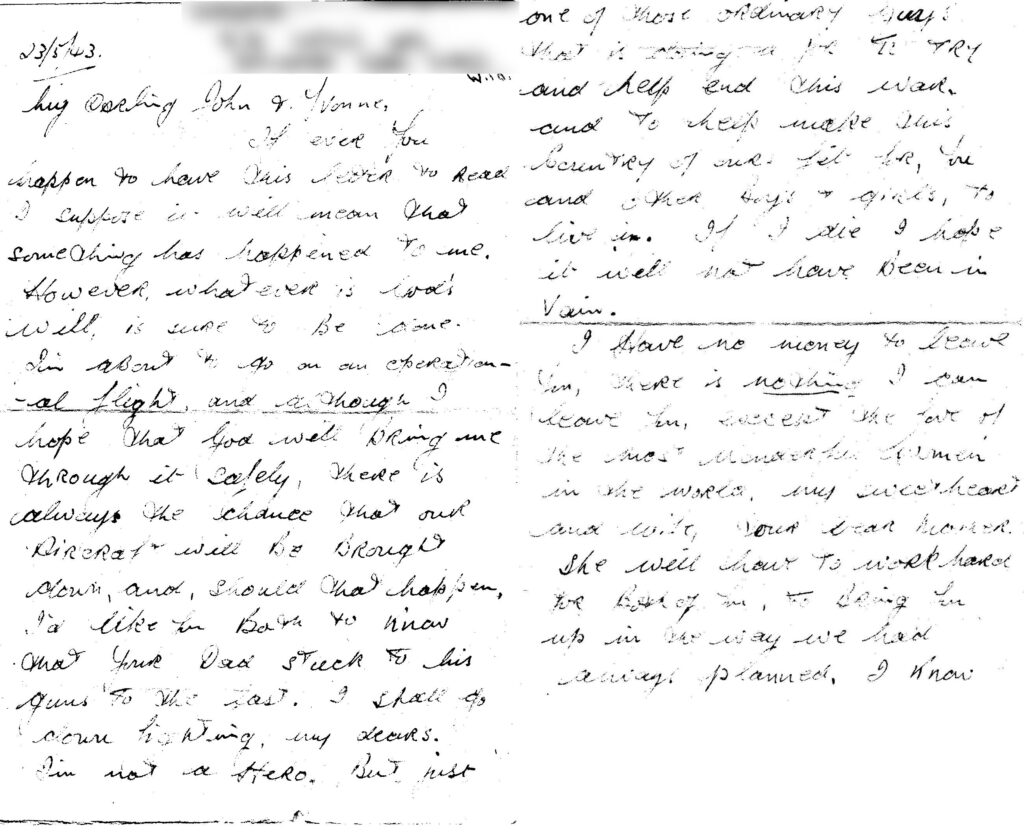 23/5/43.
W.10.
My Darling John & Yvonne,
If ever You
happen to have this letter to Read
I suppose it will mean that
something has happened to me.
However, whatever is God's
will, is sure to Be done.
I'm about to go on an operation-
-al flight, and although I
hope that God will Bring me
through it safely, there is
always the chance that our
Aircraft will Be Brought
down, and, should that happen,
I'd like You Both to know
that Your Dad stuck to his
guns to the last. I shall go
down fighting, my dears.
I'm not a Hero. But just
one of those ordinary Guys
that is doing a job to TRY
and help end this war.
and to help make this
Country of ours fit for, You
and other boys & girls, to
live in. If I die I hope
it will not have Been in
Vain.
I Have no money to leave
You, there is nothing I can
leave You, except the love of
the most wonderful women
in the world, my sweetheart
and wife, Your dear Mother.
She will have to work hard
for Both of You, to Bring You
up in the way we had
always planned. I Know